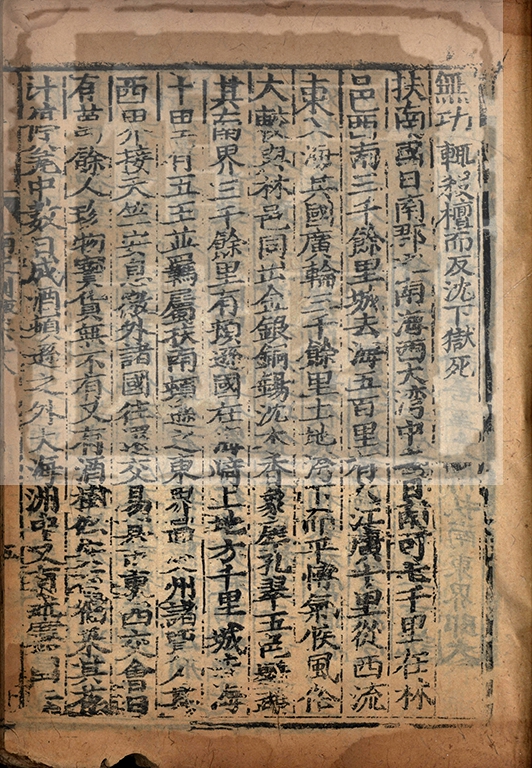 無功輒殺檀而反沈下獄死
扶南國日南郡之南海西大灣中去日南可七千里在林
邑西南三千餘里城去海五百里有大江廣十里從西流
東入海其國廣輪三千餘里土地洿下而平博氣候風俗
大較與林邑同出金銀銅錫沈木香象犀孔翠五色鸚鵡
其南界三千餘里有頓遜國在海崎上地方千里城去海
十里有五王並羈屬扶南頓遜之東界通交州諸賈人其
西界接天竺安息徼外諸國往還交易其市東西交會日
有萬餘人珍物寶貨無不有又有酒樹似安石榴采其花
汁停甕中數日成酒頓遜之外大海洲中又有毗騫國